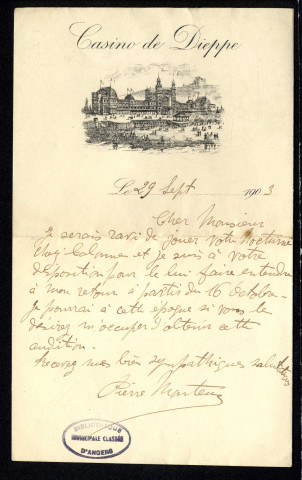 Casino de Dieppe
Le 29 Sept 1903
Cher Monsieur
Je serais ravi de jouer votre Nocturne
chez Colonne et je suis à votre
disposition pour le lui faire entendre
à mon retour à partir du 16 Octobre.
Je pourrai à cette époque si vous le
désirez m'occuper d'obtenir cette
audition.
Recevez mes bien sympathiques salutations
Pierre
BIBLIOTHÈQUE
MUNICIPALE CLASSÉE
D'ANGERS